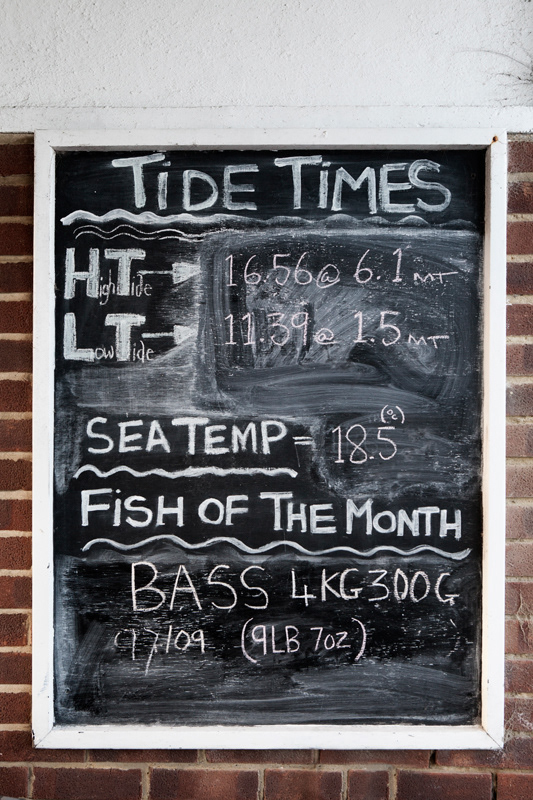 TiDE TiMES
High Tide 16.56@ 6.1 MT
Low Tide 11.39@ 1.5 MT
SEA TEMP = 18.5 (°c)
FiSH OF THE MONTH
BASS 4KG300G
(9LB 7oz)